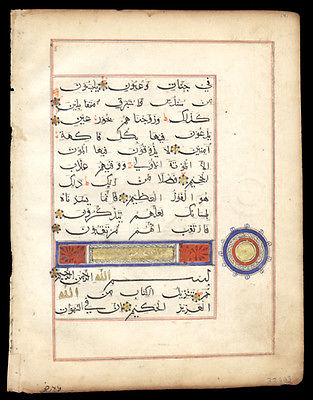 في جنات وعيون يلبسون
من سندس واستبرق متقابلين
كذلك وزوجناهم بحور عين
يدعون فيها بكل فاكهة
امنين لا يذوقون فيها الموت
الا الموتة الاولى ووقيهم عذاب
الجحيم فضلا من ربك ذلك
هو الفوز العظيم فانما يسرناه
بلسانك لعلهم يتذكرون
فارتقب انهم مرتقبون
بسم الله الرحمن الرحيم
حم تنزيل الكتاب من الله
العزيز الحكيم ان في السموات